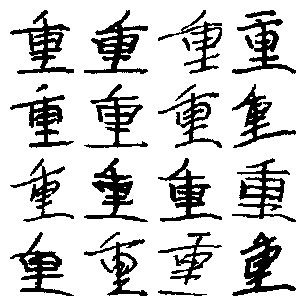 重重重重
重重重重
重重重重
重重重重